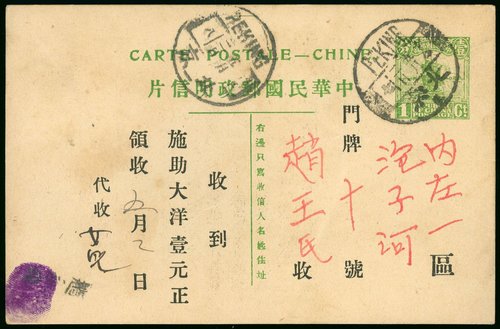 CARTE POSTALE—CHINE
中華民國郵政明信片
PEKING
PEKING
北京
1 Ct
內左一區
泡子河
門牌十號
趙王氏收
右邊只寫收信人名姓住址
收到
施助大洋壹元正
領收 五月 日
代收